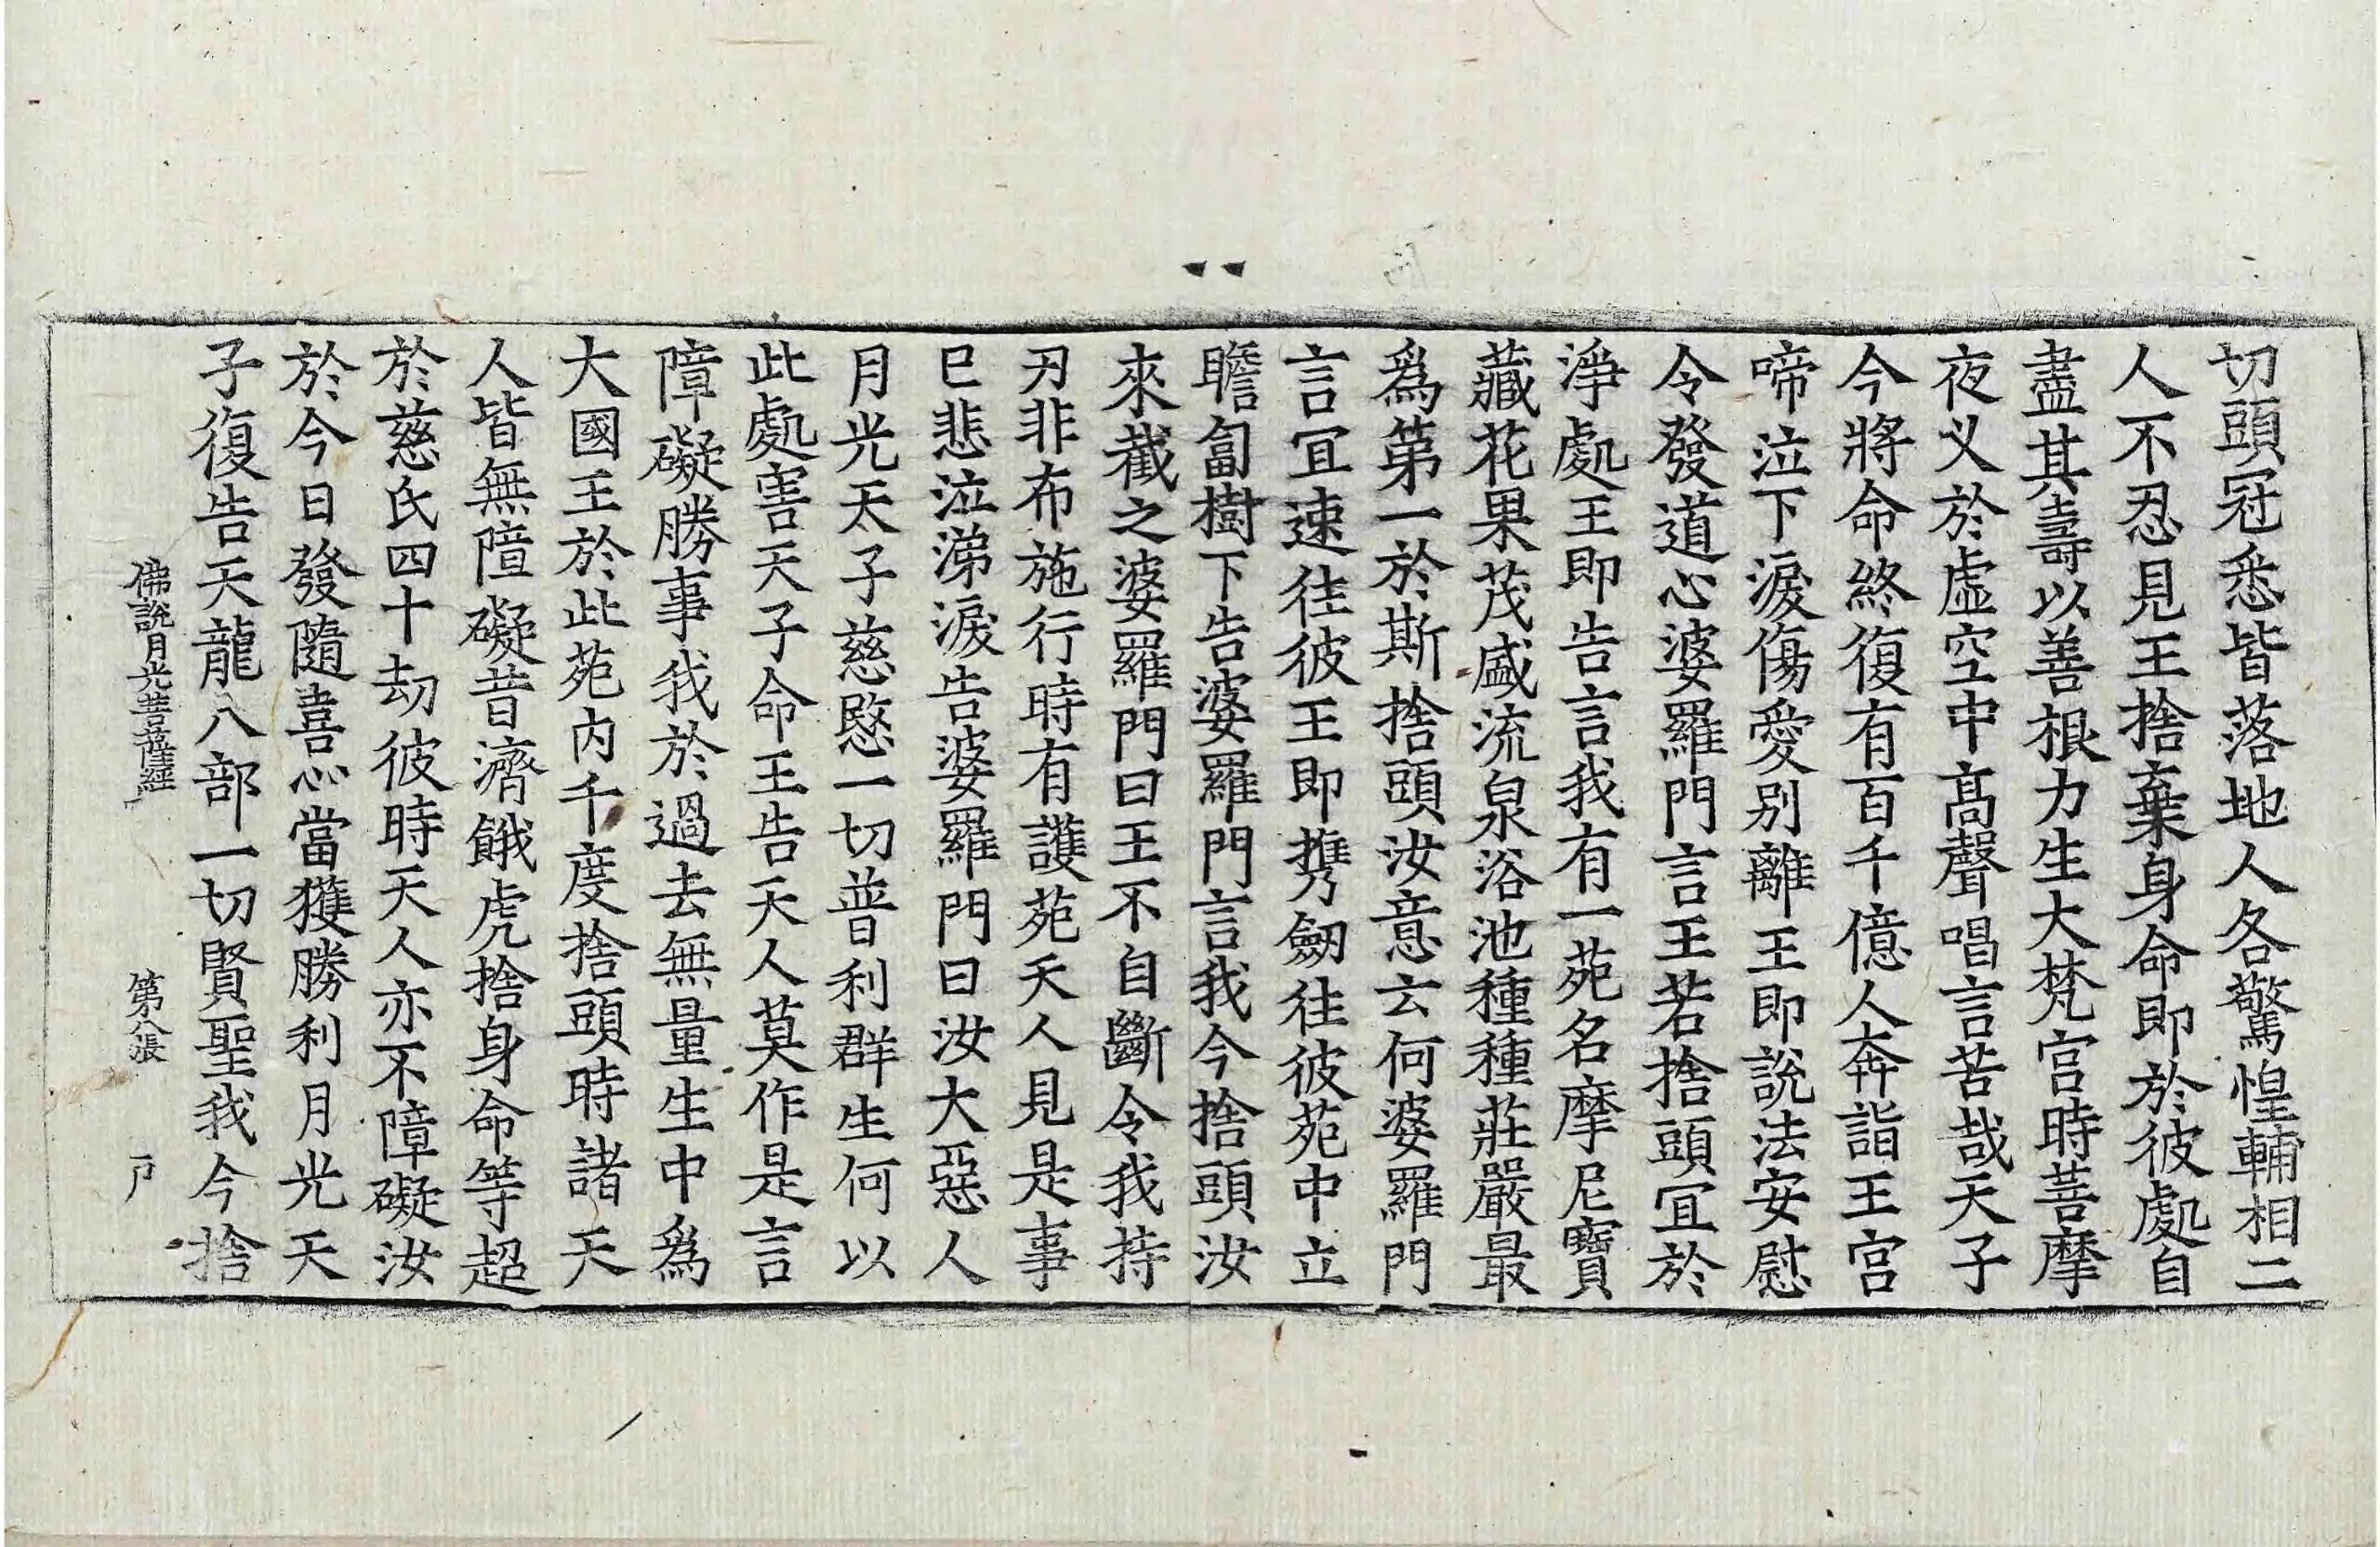 切頭冠悉皆落地人各驚惶輔相二
人不忍見王捨棄身命即於彼處自
盡其壽以善根力生大梵宮時菩摩
夜叉於虛空中髙聲唱言苦哉天子
今將命終復有百千億人奔詣王宮
啼泣下淚傷愛別離王即說法安慰
令發道心婆羅門言王若捨頭冝於
淨處王即告言我有一苑名摩尼寶
藏花果茂盛流泉浴池種種莊嚴最
爲第一於斯捨頭汝意云何婆羅門
言冝速徃彼王即携劒徃彼苑中立
瞻蔔樹下告婆羅門言我今捨頭汝
來截之婆羅門曰王不自斷令我持
刃非布施行時有護苑天人見是事
巳悲泣涕淚告婆羅門曰汝大惡人
月光天子慈愍一切普利群生何以
此處害天子命王告天人莫作是言
障礙勝事我於過去無量生中爲
大國王於此苑内千度捨頭時諸天
人皆無障礙昔濟餓虎捨身命等超
於慈氏四十劫彼時天人亦不障礙汝
於今日發隨喜心當獲勝利月光天
子復告天龍八部一切賢聖我今捨
佛說月光菩薩經 第八張 戸